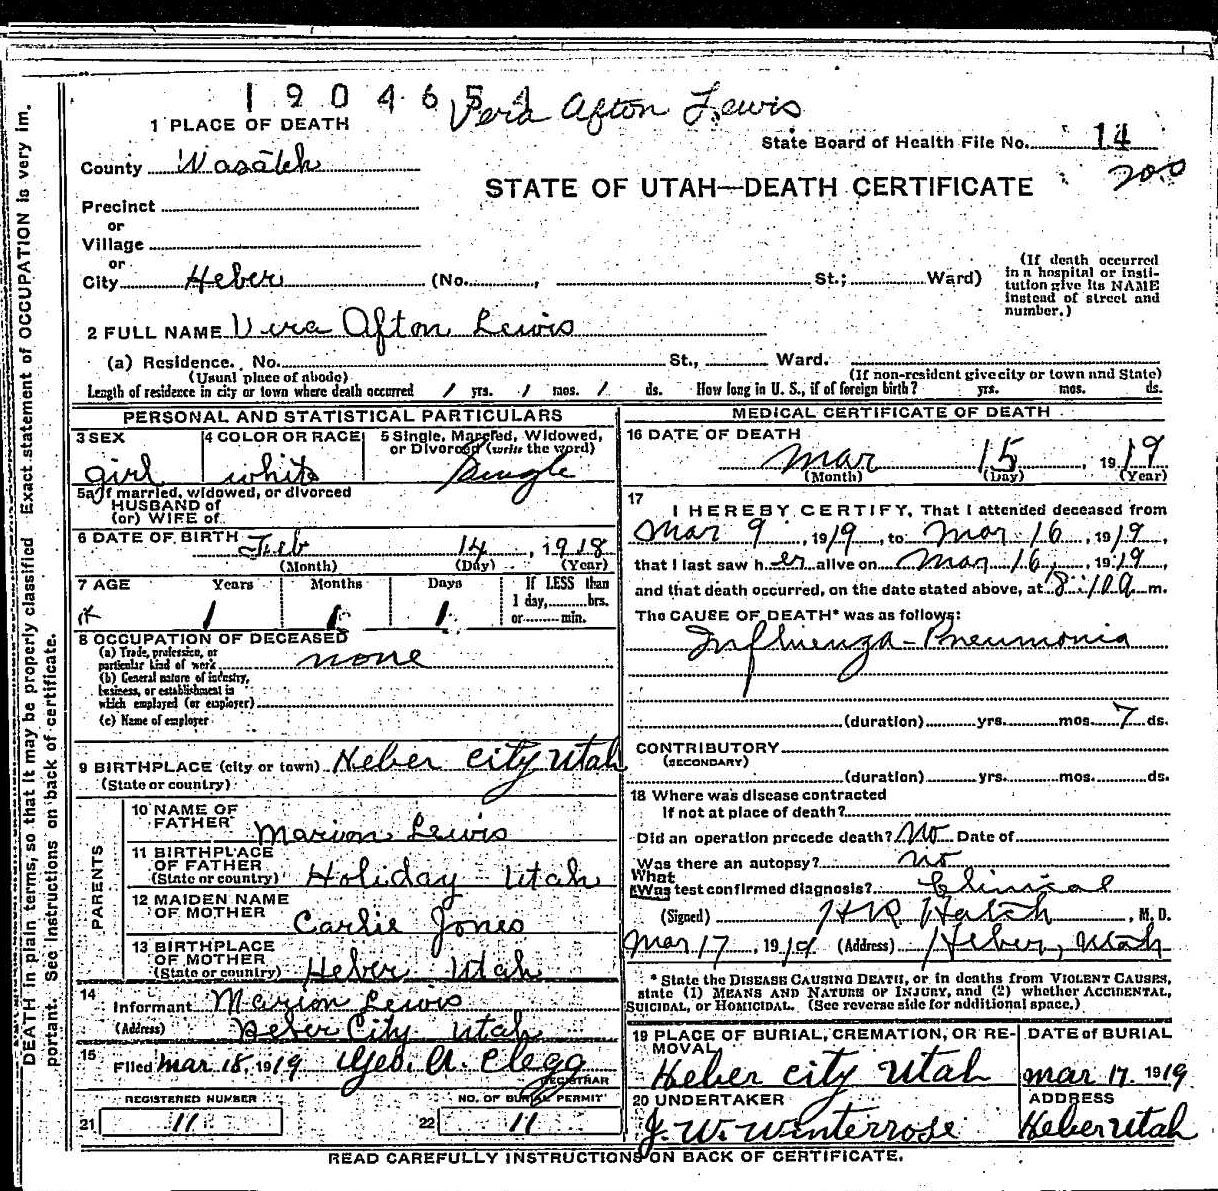 1904651 Vera Afton Lewis
1 PLACE OF DEATH
State Board of Health File No. 14
County Wasatch
200
STATE OF UTAH—DEATH CERTIFICATE
Precinct
or
Village
or
City Heber (No. , St.; Ward)
(If death occurred in a hospital or institution give its NAME instead of street and number.)
2 FULL NAME Vera Afton Lewis
(a) Residence. No. St., Ward.
(Usual place of abode) (If non-resident give city or town and State)
Length of residence in city or town where death occurred 1 yrs. 1 mos. 1 ds. How long in U. S., if of foreign birth? yrs. mos. ds.
PERSONAL AND STATISTICAL PARTICULARS
3 SEX 4 COLOR OR RACE 5 Single, Married, Widowed,
or Divorced (write the word)
girl white Single
5a If married, widowed, or divorced
HUSBAND of
(or) WIFE of
6 DATE OF BIRTH Feb 14, 1918
(Month) (Day) (Year)
7 AGE Years Months Days If LESS than
1 day, hrs.
1 1 1 or min.
8 OCCUPATION OF DECEASED
(a) Trade, profession, or
particular kind of work none
(b) General nature of industry,
business, or establishment in
which employed (or employer)
(c) Name of employer
9 BIRTHPLACE (city or town) Heber City Utah
(State or country)
PARENTS
10 NAME OF
FATHER Marion Lewis
11 BIRTHPLACE
OF FATHER
(State or country) Holiday Utah
12 MAIDEN NAME
OF MOTHER Carlie Jones
13 BIRTHPLACE
OF MOTHER
(State or country) Heber Utah
14 Informant Marion Lewis
(Address) Heber City Utah
15 Filed Mar 18, 1919 Geo. A. Clegg
REGISTRAR
REGISTERED NUMBER NO. OF BURIAL PERMIT
21 11 22 11
MEDICAL CERTIFICATE OF DEATH
16 DATE OF DEATH
Mar 15, 1919
(Month) (Day) (Year)
17
I HEREBY CERTIFY, That I attended deceased from
Mar 9, 1919, to Mar 16, 1919,
that I last saw her alive on Mar 16, 1919,
and that death occurred, on the date stated above, at 8:10 a m.
The CAUSE OF DEATH* was as follows:
Influenza-Pneumonia
(duration) yrs. mos. 7 ds.
CONTRIBUTORY
(SECONDARY)
(duration) yrs. mos. ds.
18 Where was disease contracted
If not at place of death?
Did an operation precede death? No Date of
Was there an autopsy? no
What
Was test confirmed diagnosis? Clinical
(Signed) H R Hatch, M. D.
Mar 17, 1919 (Address) Heber, Utah
* State the DISEASE CAUSING DEATH, or in deaths from VIOLENT CAUSES,
state (1) MEANS AND NATURE OF INJURY, and (2) whether ACCIDENTAL,
SUICIDAL, or HOMICIDAL. (See reverse side for additional space.)
19 PLACE OF BURIAL, CREMATION, OR RE-
MOVAL DATE of BURIAL
Heber City Utah Mar 17. 1919
20 UNDERTAKER ADDRESS
J. W. Winterrose Heber Utah
READ CAREFULLY INSTRUCTIONS ON BACK OF CERTIFICATE.
DEATH in plain terms, so that it may be properly classified Exact statement of OCCUPATION is very im.
portant. See instructions on back of certificate.